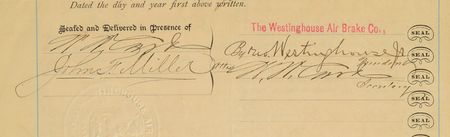 Dated the day and year first above written.
Sealed and Delivered in Presence of
The Westinghouse Air Brake Co.,
W. W. Card
John F. Miller
By Geo. Westinghouse Jr
President
Attest W. W. Card
Secretary
SEAL
SEAL
SEAL
SEAL
SEAL
SEAL